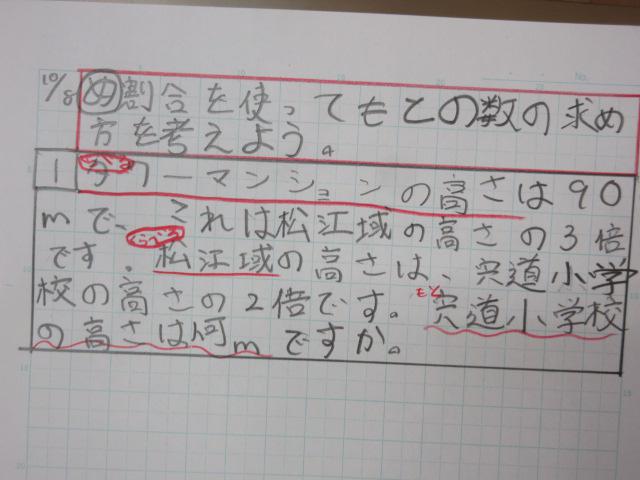 10/8 め 割合を使ってもとの数の求め
方を考えよう。
1 タワーマンションの高さは90
mで、これは松江域の高さの3倍
くらべる
です。松江域の高さは、宍道小学
校の高さの2倍です。宍道小学校
もと
の高さは何mですか。